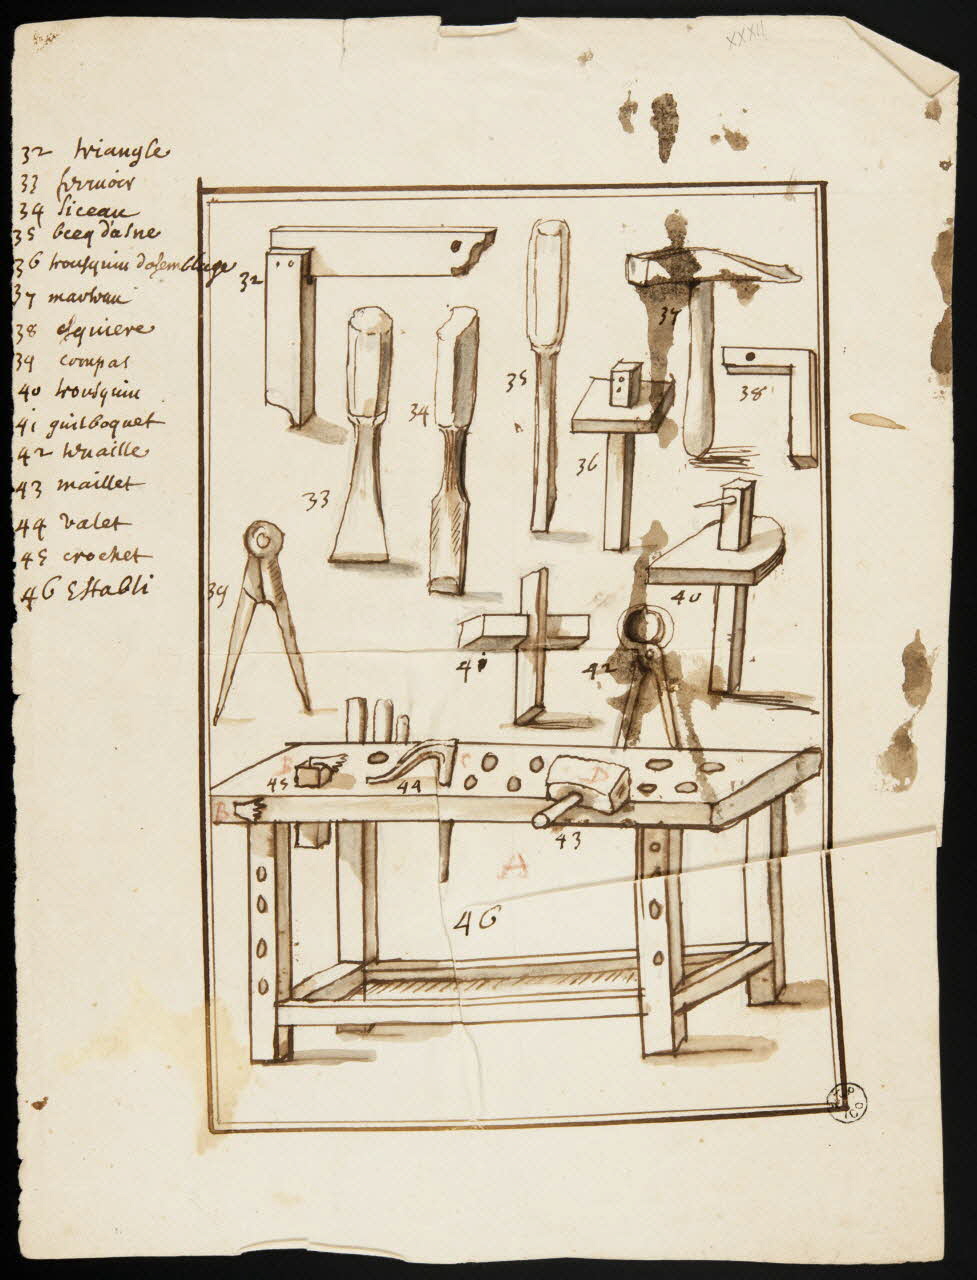 XXXII
32 triangle
33 fermoir
34 siceau
35 becq d'asne
36 trousquin d'asemblage
37 marteau
38 esquiere
39 compas
40 trousquin
41 guilboquet
42 tenaille
43 maillet
44 valet
45 crochet
46 Establi
32
33
34
35
36
37
38
39
40
41
42
B
45
44
C
D
B
43
A
46